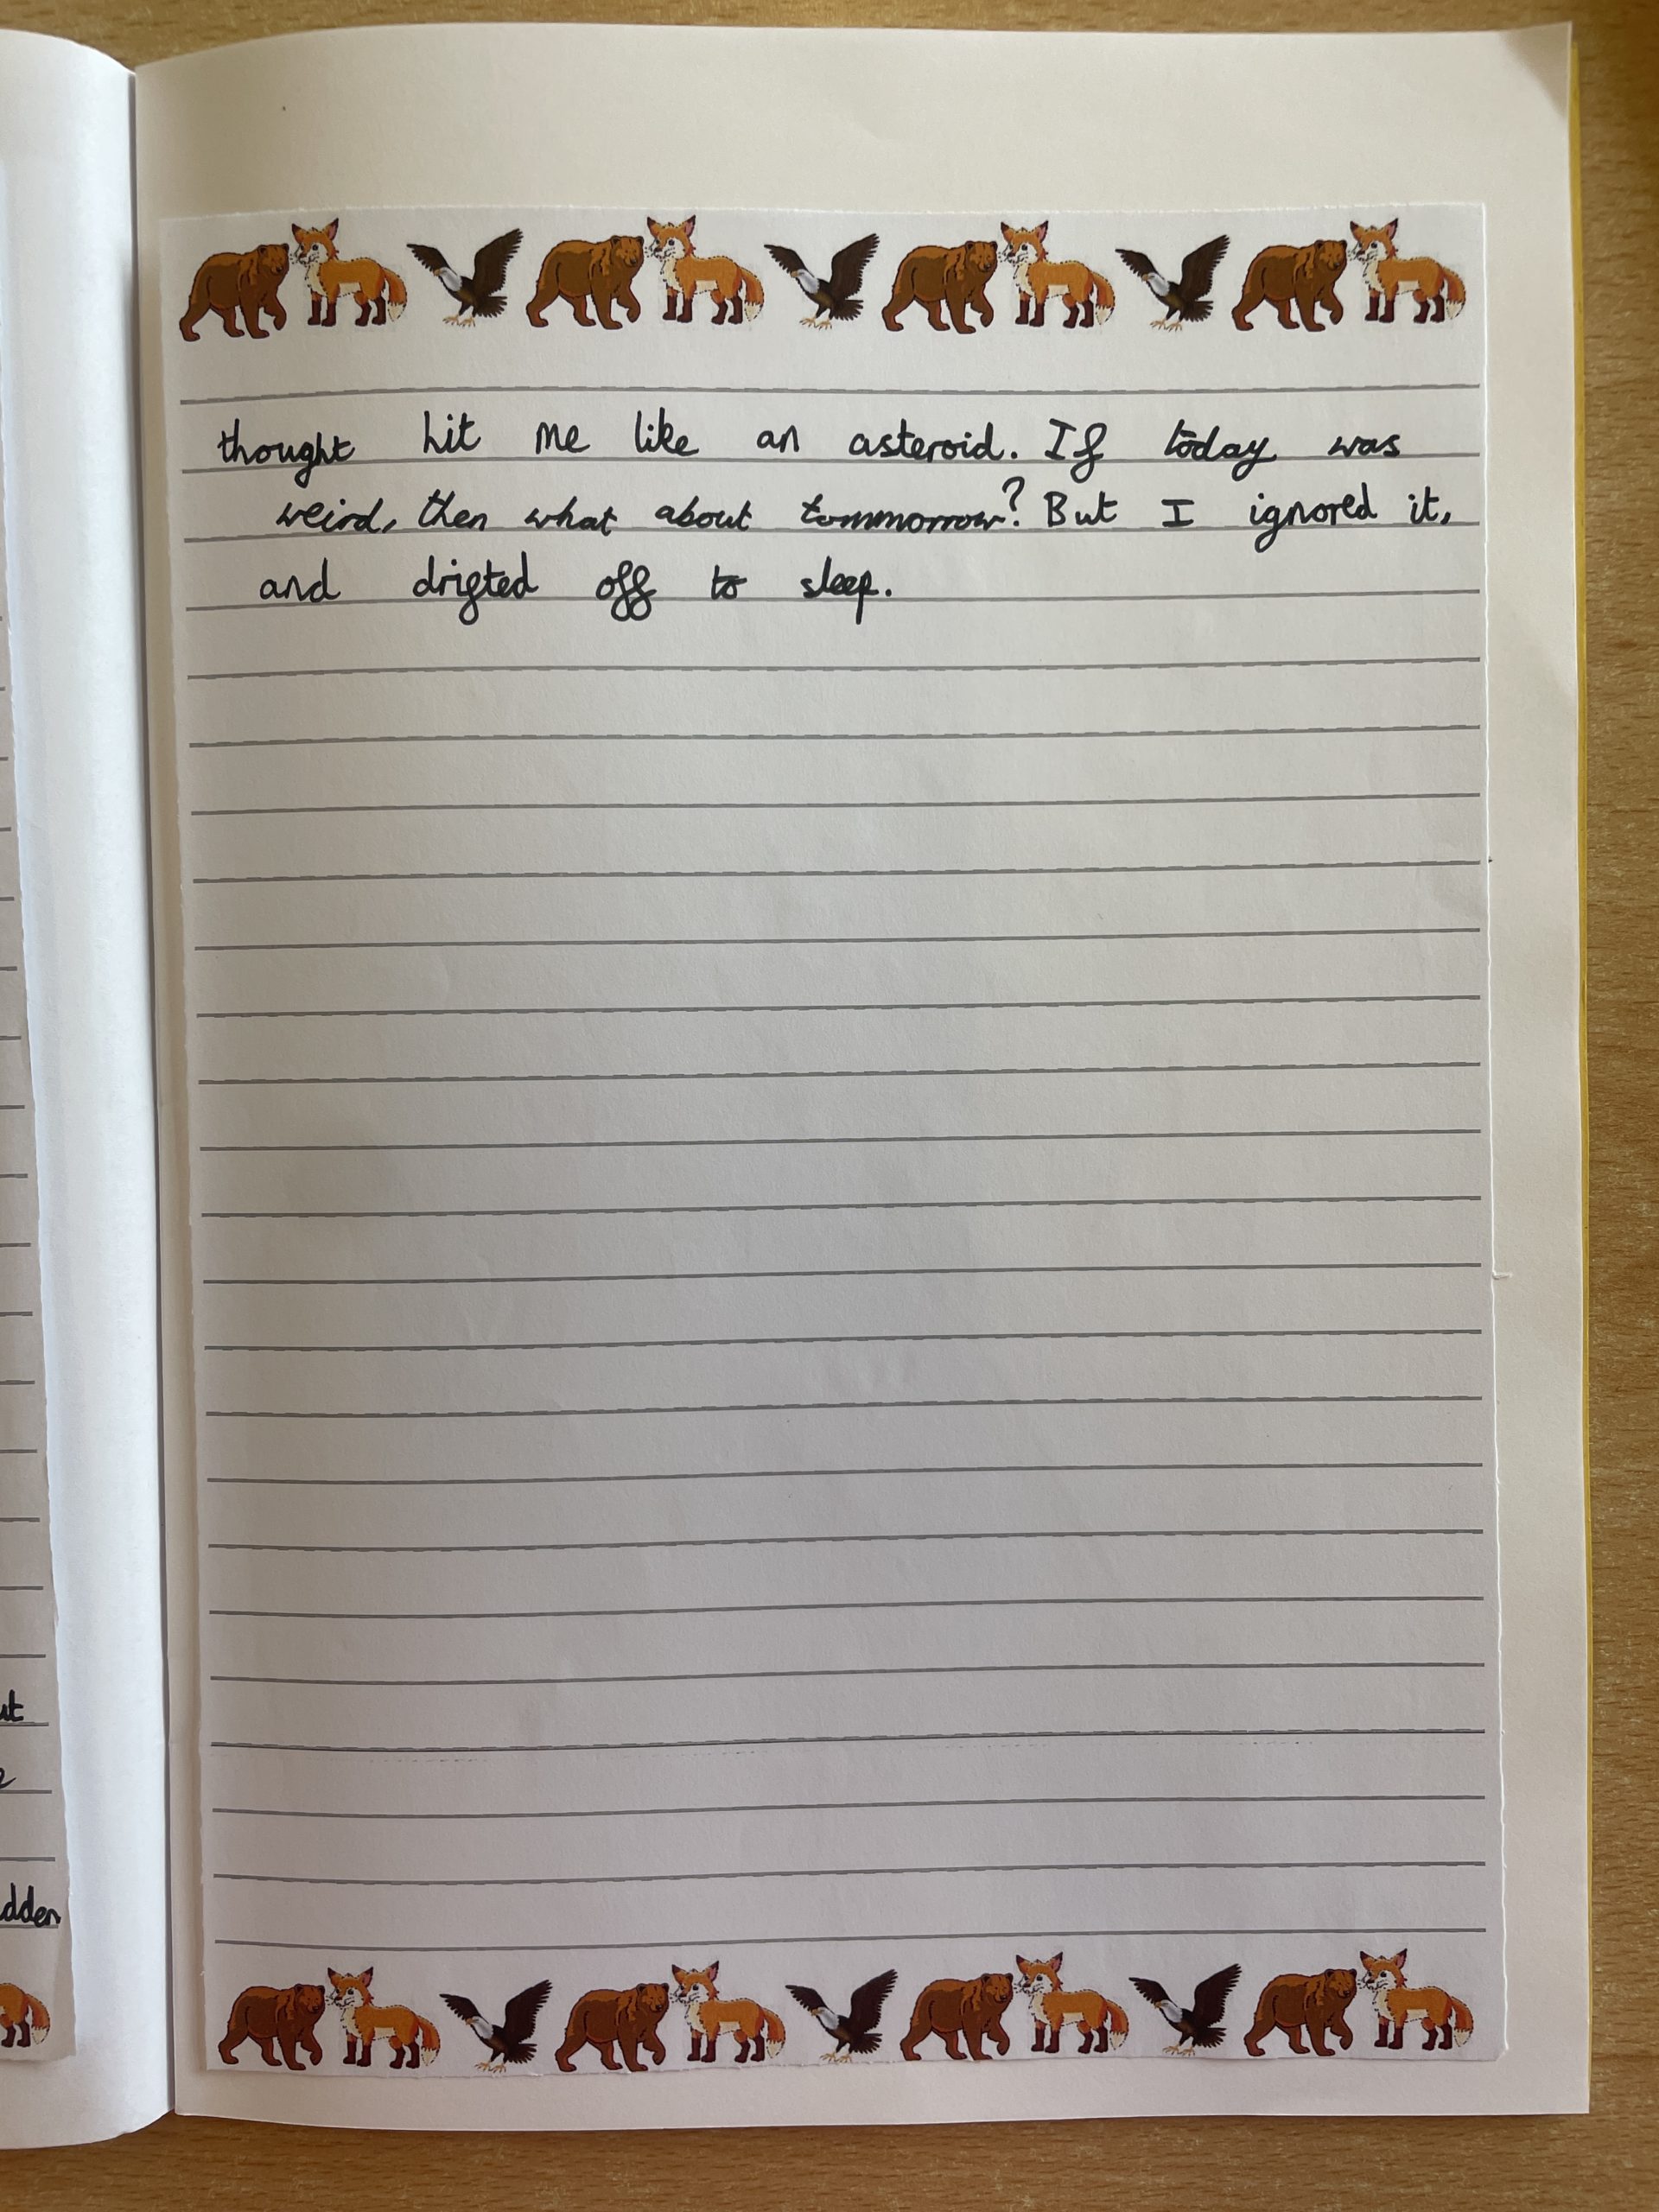 thought hit me like an asteroid. If today was
weird, then what about tommorrow? But I ignored it,
and drifted off to sleep.